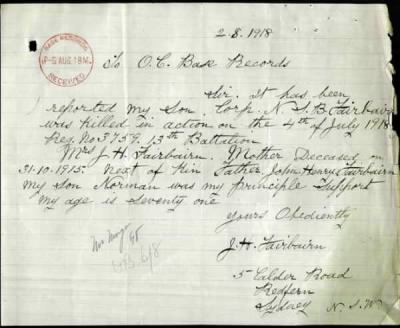 2-8-1918
BASE RECORDS
5-AUG.18
RECEIVED
To O.C. Base Records
Sir. It has been
reported my Son. Corp. N S. B Fairbairn
was Killed in action on the 4th of July 1918
Reg. No 3759. 13th Battalion
Mrs J H. Fairbairn. Mother Deceased on
31-10-1915. Next of Kin Father John Henry Fairbairn
My Son Norman was my Principle Support
My age is Seventy one
Yours Obediently
J. H. Fairbairn
5 Calder Road
Redfern
Sydney N. S. W
6/8